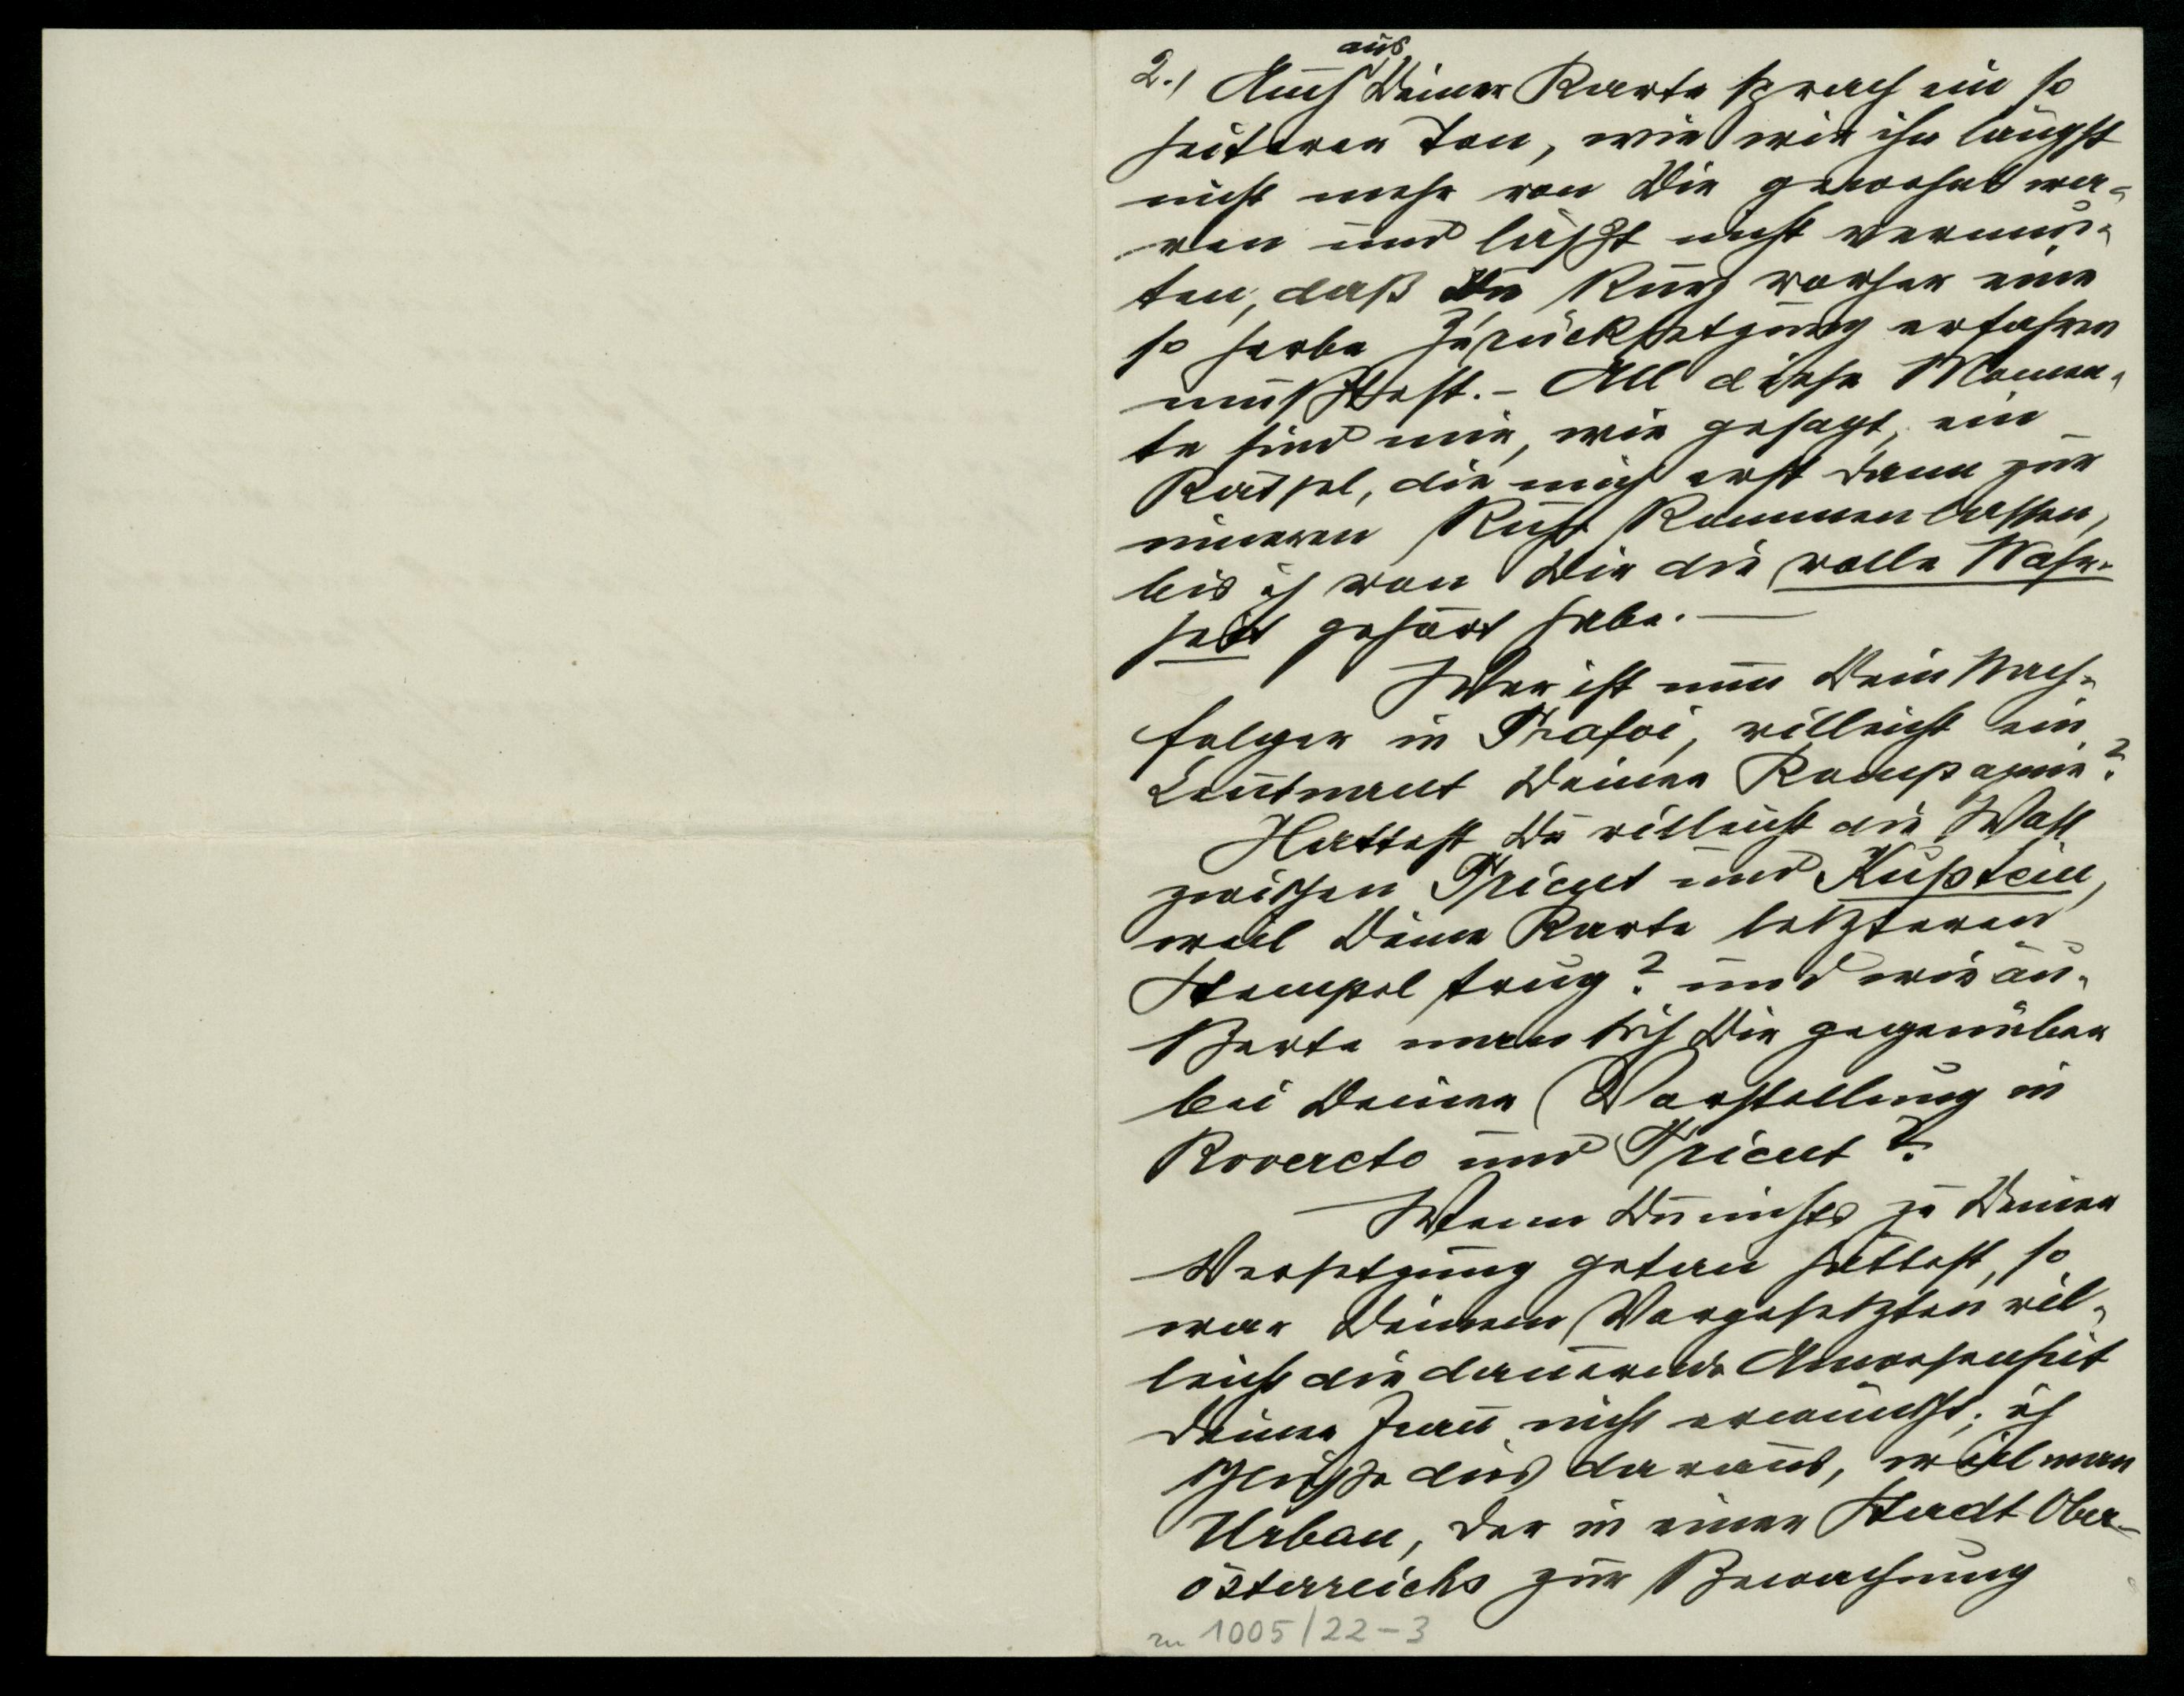 aus
2./ Auch Deiner Karte sprach ein so
heiterer Ton, wie wir ihn längst
nicht mehr von Dir gewohnt wa-
ren und läßt nicht vermu-
ten, daß Du kurz vorher eine
so herbe Zurücksetzung erfahren
mußtest. - All diese Momen-
te sind mir, wie gesagt, ein
Rätsel, die mich erst dann zur
inneren Ruhe kommen lassen,
bis ich von Dir die volle Wahr-
heit gehört habe. —
Wer ist nun Dein Nach-
folger in Trafoi, villeicht ein
Leutnant Deiner Kompagnie?
Hattest Du villeicht die Wahl
zwischen Trient und Kufstein,
weil Deine Karte letzteren
Stempel trug? und wie äu-
ßerte man sich Dir gegenüber
bei Deiner Vorstellung in
Rovereto und Trient?
Wenn Du nichts zu Deiner
Versetzung getan hättest, so
war Deinem Vorgesetzten vil-
leicht die dauernde Anwesenheit
Deiner Frau nicht erwünscht; ich
schließe dies daraus, weil man
Urban, der in einer Stadt Ober-
österreichs zur Bewachung
zu 1005/22-3